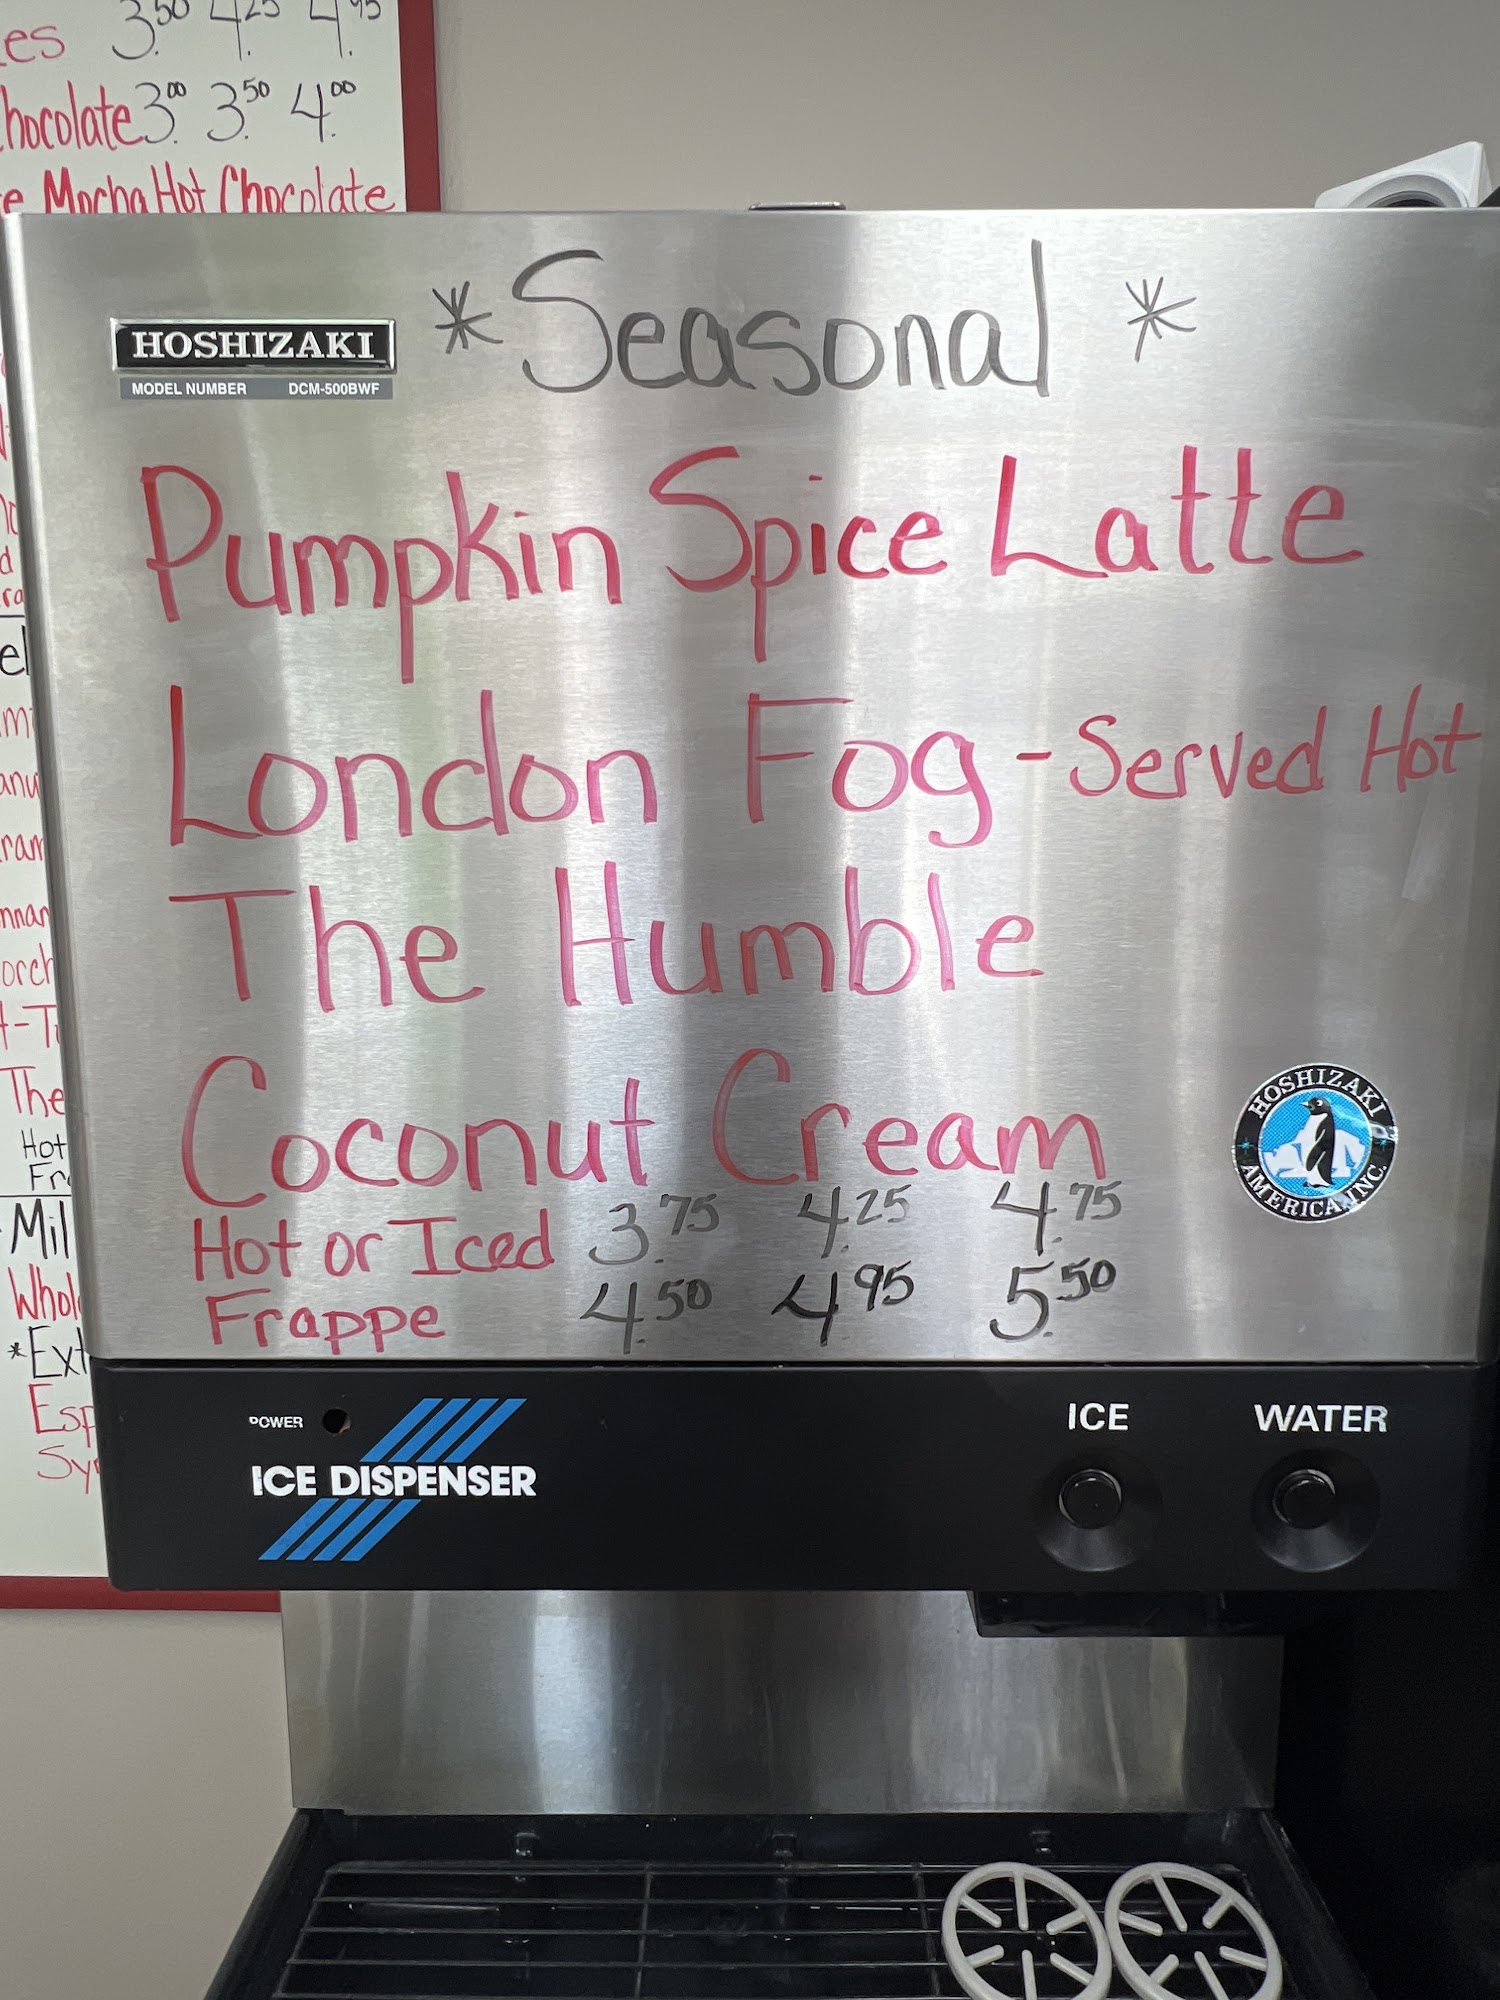 3.50 4.25 4.95
3.00 3.50 4.00
Mocha Hot Chocolate
HOSHIZAKI
MODEL NUMBER DCM-500BWF
*Seasonal*
Pumpkin Spice Latte
London Fog - Served Hot
The Humble
Coconut Cream
Hot or Iced 3.75 4.25 4.75
Frappe 4.50 4.95 5.50
HOSHIZAKI
AMERICA, INC.
The
Hot
POWER
ICE DISPENSER
ICE
WATER